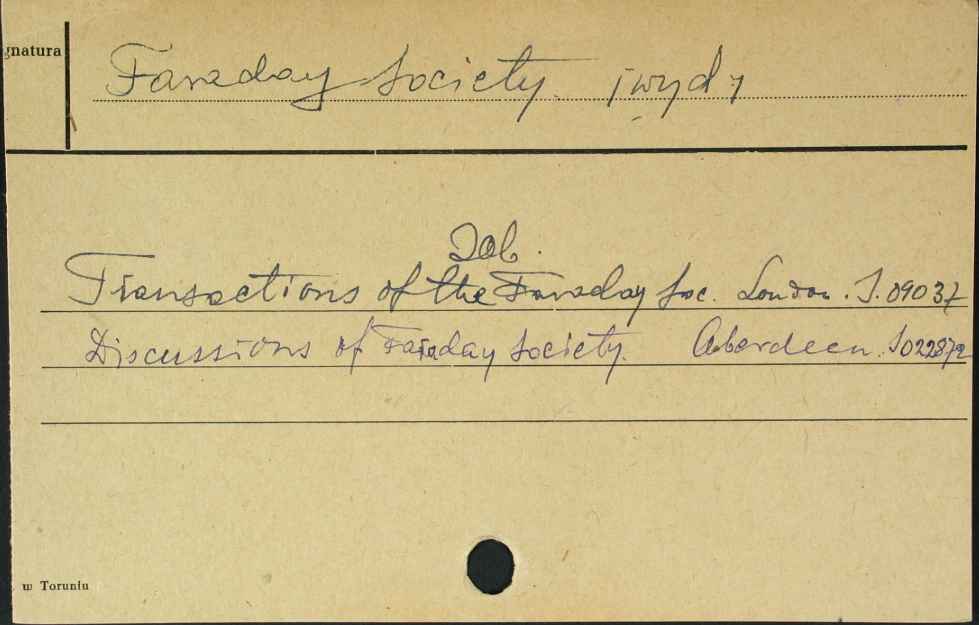 gnatura
Faraday Society. jwyd.
Zob.
Transactions of the Faraday Soc. London. S.09037
Discussions of Faraday Society. Aberdeen. S022872
w Toruniu